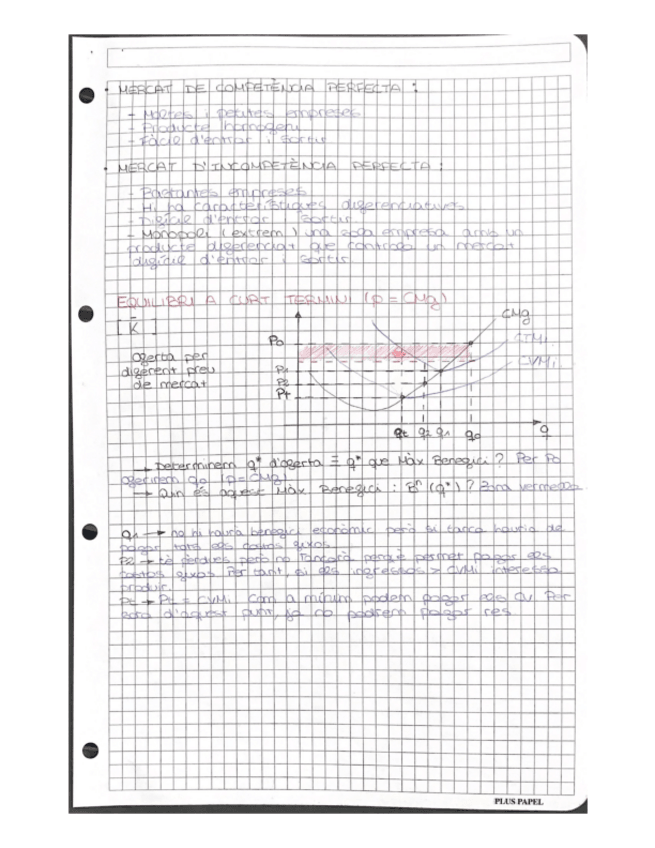 · MERCAT DE COMPETÈNCIA PERFECTA :
- Moltes i petites empreses
- Producte homogeni
- Fàcil d'entrar i sortir
· MERCAT D'INCOMPETÈNCIA PERFECTA :
- Bastantes empreses
- Hi ha característiques diferenciatives
- Difícil d'entrar i sortir
- Monopoli (extrem) una sola empresa amb un
producte diferenciat que controla un mercat
difícil d'entrar i sortir
EQUILIBRI A CURT TERMINI (p = CMg)
[ K̄ ]
CMg
CTMi
CVMi
Oferta per
diferent preu
de mercat
Po
P1
P2
Pt
qt q2 q1 qo q
→ Determinem q* d'oferta ≡ q* que Màx Benefici? Per Po
oferirem qo (p=CMg
→ Quin és aquest Màx Benefici : Bⁿ (q*)? Zona vermella
q1 → no hi haurà benefici econòmic però si tanca hauria de
pagar tots els costos fixos
P2 → té pèrdues però no tancarà perquè permet pagar els
costos fixos Per tant, si els ingressos > CVMi interessa
produir
Pt → Pt = CVMi Com a mínim podem pagar els CV. Per
sota d'aquest punt, ja no podrem pagar res
PLUS PAPEL